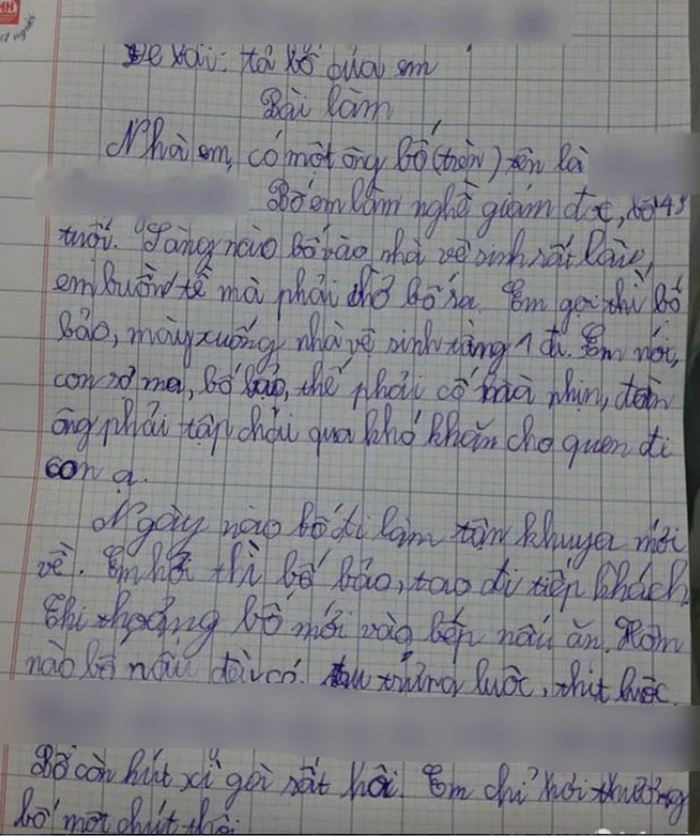 Đề bài: tả bố của em
Bài làm
Nhà em, có một ông bố (trộn) tên là
Bố em làm nghề giám đốc, bố 45
tuổi. Sáng nào bố vào nhà vệ sinh rất lâu,
em buồn tè mà phải chờ bố ra. Em gọi thì bố
bảo, mày xuống nhà vệ sinh tầng 1 đi. Em nói,
con sợ ma, bố bảo, thế phải cố mà nhịn, đàn
ông phải tập chải qua khó khăn cho quen đi
con ạ.
Ngày nào bố đi làm tận khuya mới
về. Em hỏi thì bố bảo, tao đi tiếp khách
Thi thoảng bố mới vào bếp nấu ăn. Hôm
nào bố nấu đều có trứng luộc, thịt luộc.
Bố còn hút xì gà rất hôi. Em chỉ hơi thương
bố một chút thôi.